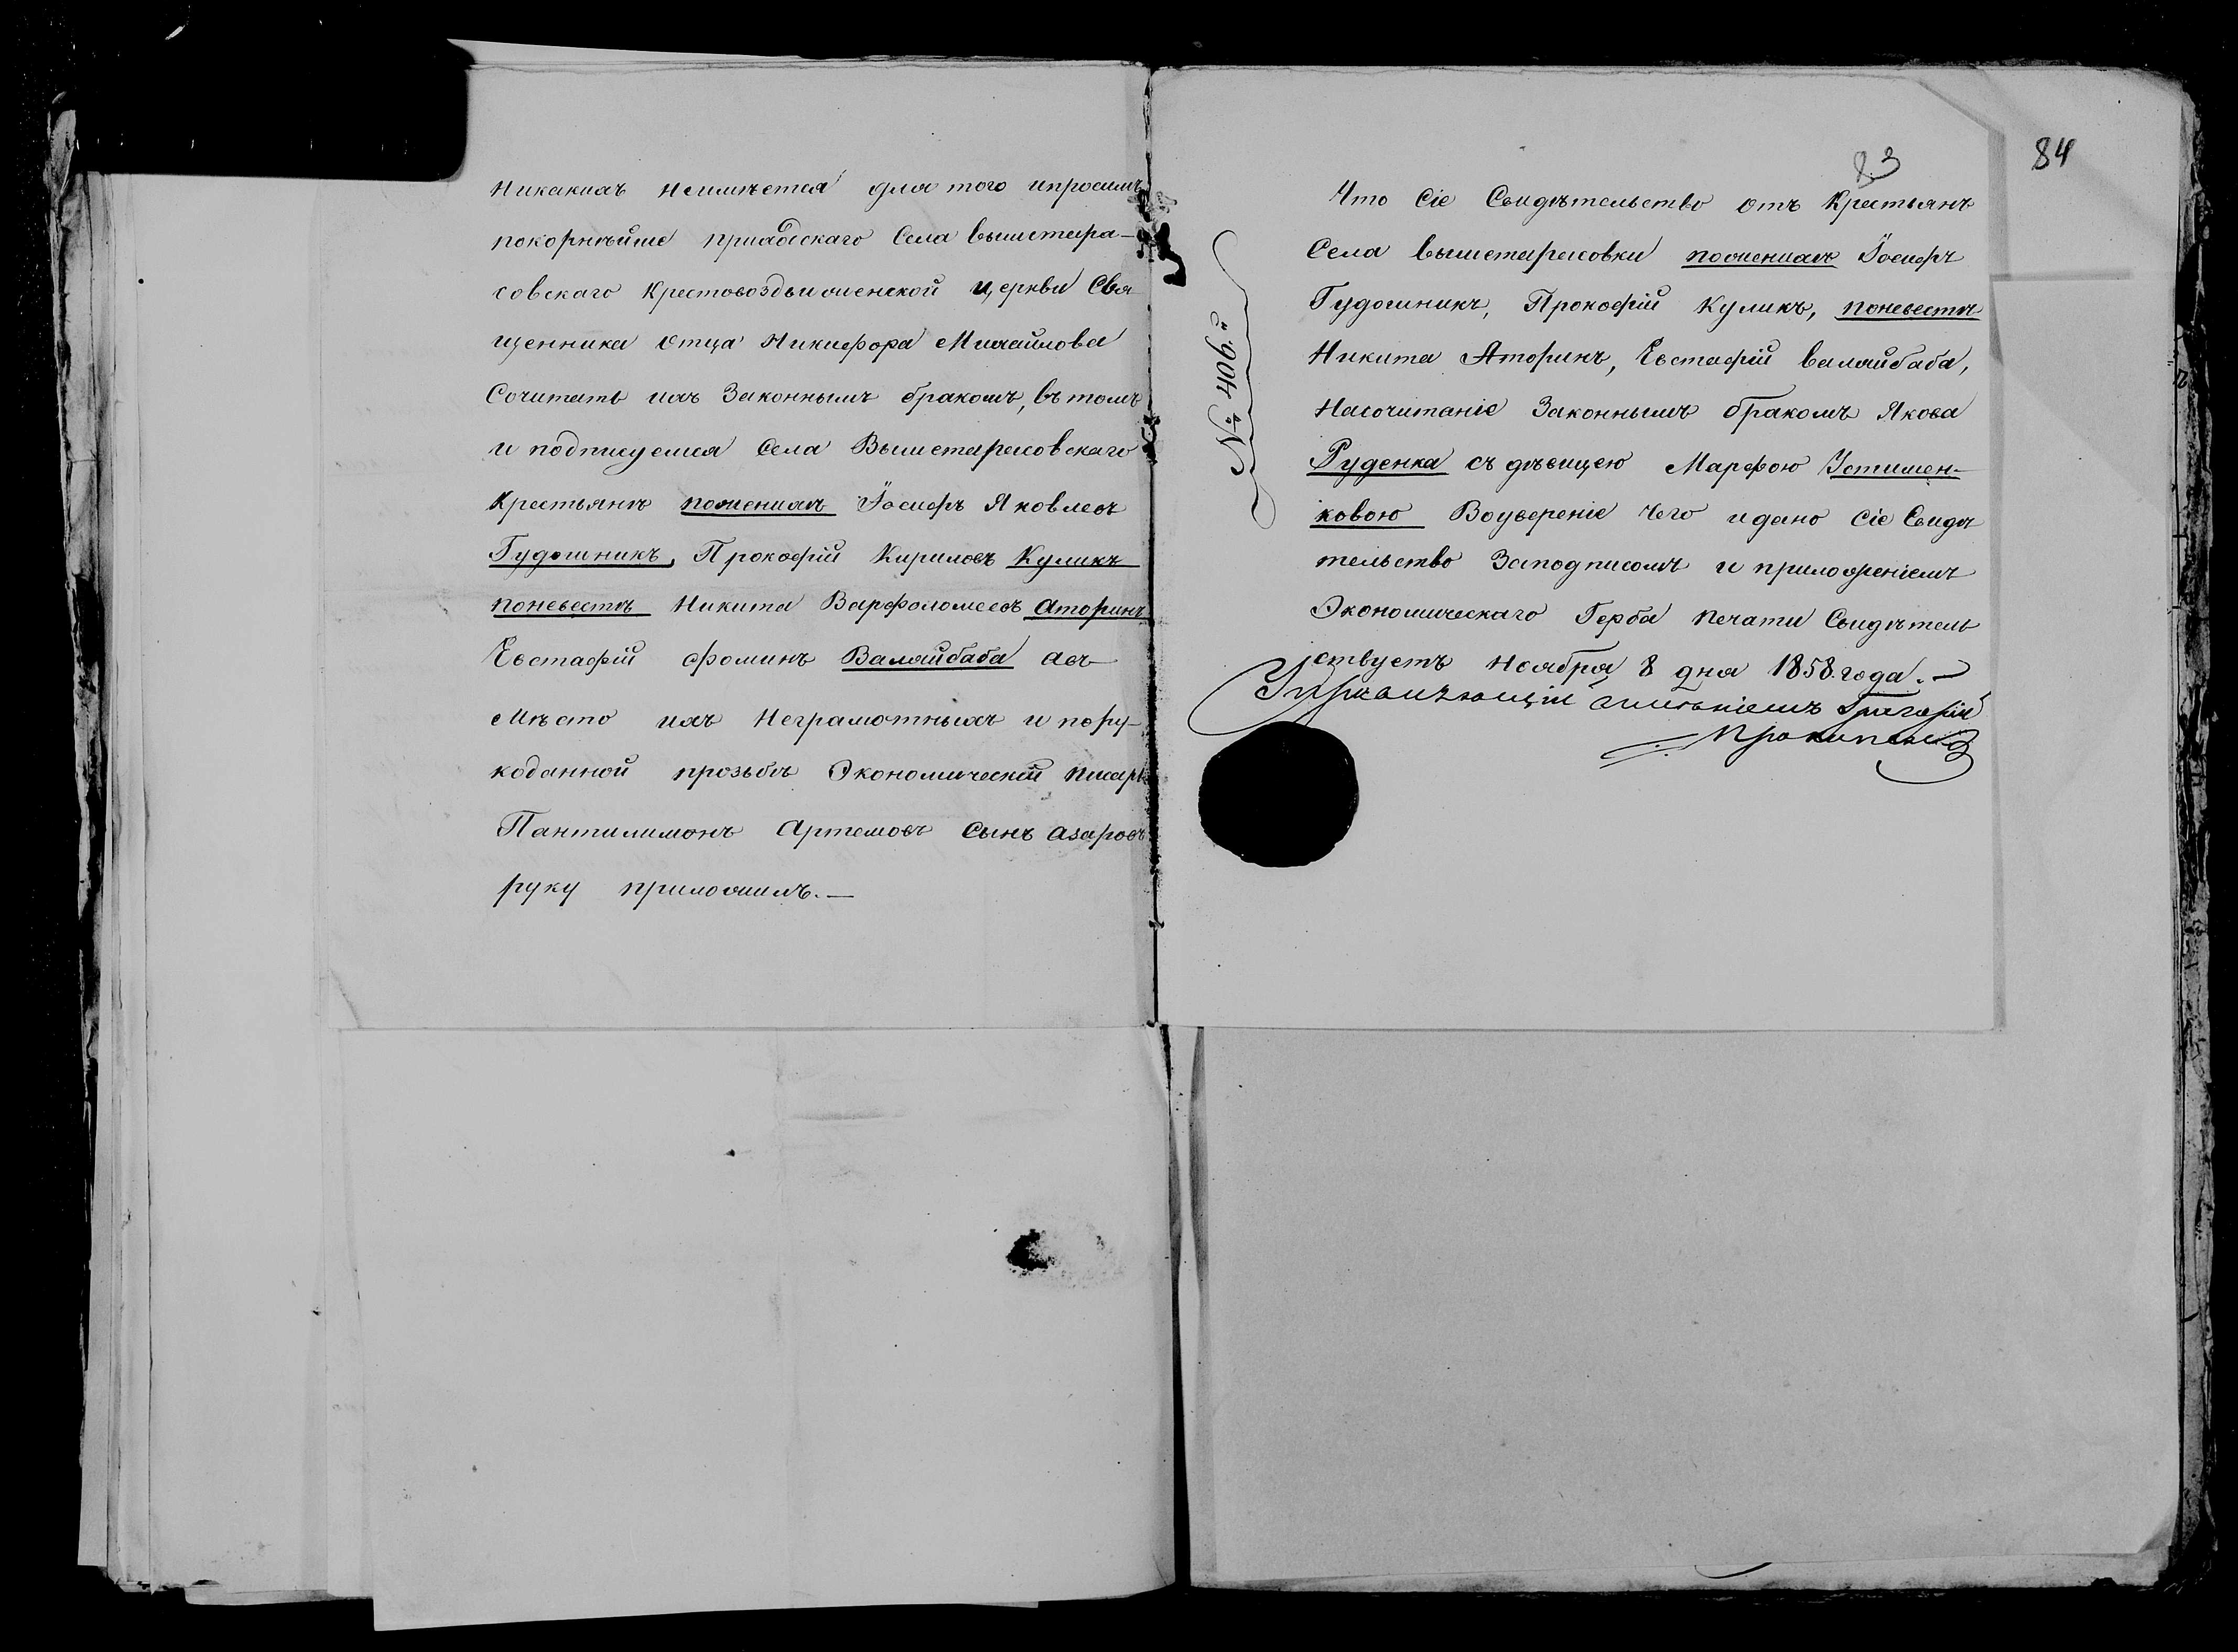 Никакихъ неимѣется для того ипросимъ
покорнѣйше прихоdскаго Села вышетара-
совскаго Крестовоздвиженской церкви Свя
щенника Отца Никифора Михайлова
Сочитать ихъ Законнымъ бракомъ, въ томъ
и подписуемся Села Вышетарасовскаго
Крестьянъ поженихѣ Іосифъ Яковлевъ
Гудошникъ, Прокофій Кириловъ Куликъ
поневестѣ Никита Варфоломеевъ Аторинъ
Евстафій Фоминъ Валяйбаба авъ
Мѣсто ихъ Неграмотныхъ и пору-
коданной прозьбѣ Экономическій писарь
Пантилимонъ Артемовъ Сынъ Азаровъ
руку приложилъ.—
84
83
№ 409.й
Что Сіе Свидѣтельство Отъ Крестьянъ
Села вышетарасовки поженихѣ Іосифъ
Гудошникъ, Прокофій Куликъ, поневестѣ
Никита Аторинъ, Евстафій валяйбаба,
Насочитаніе Законнымъ бракомъ Якова
Руденка съ дѣвицею Марфою Устимен-
ковою Воуверенiе Чего идано Сіе Свидѣ
тельство Заподписомъ и приложеніемъ
Экономическаго Герба печати Свидѣтель
ствуетъ Ноября 8 дня 1858. года.—
Управляющій имѣніемъ Григорій